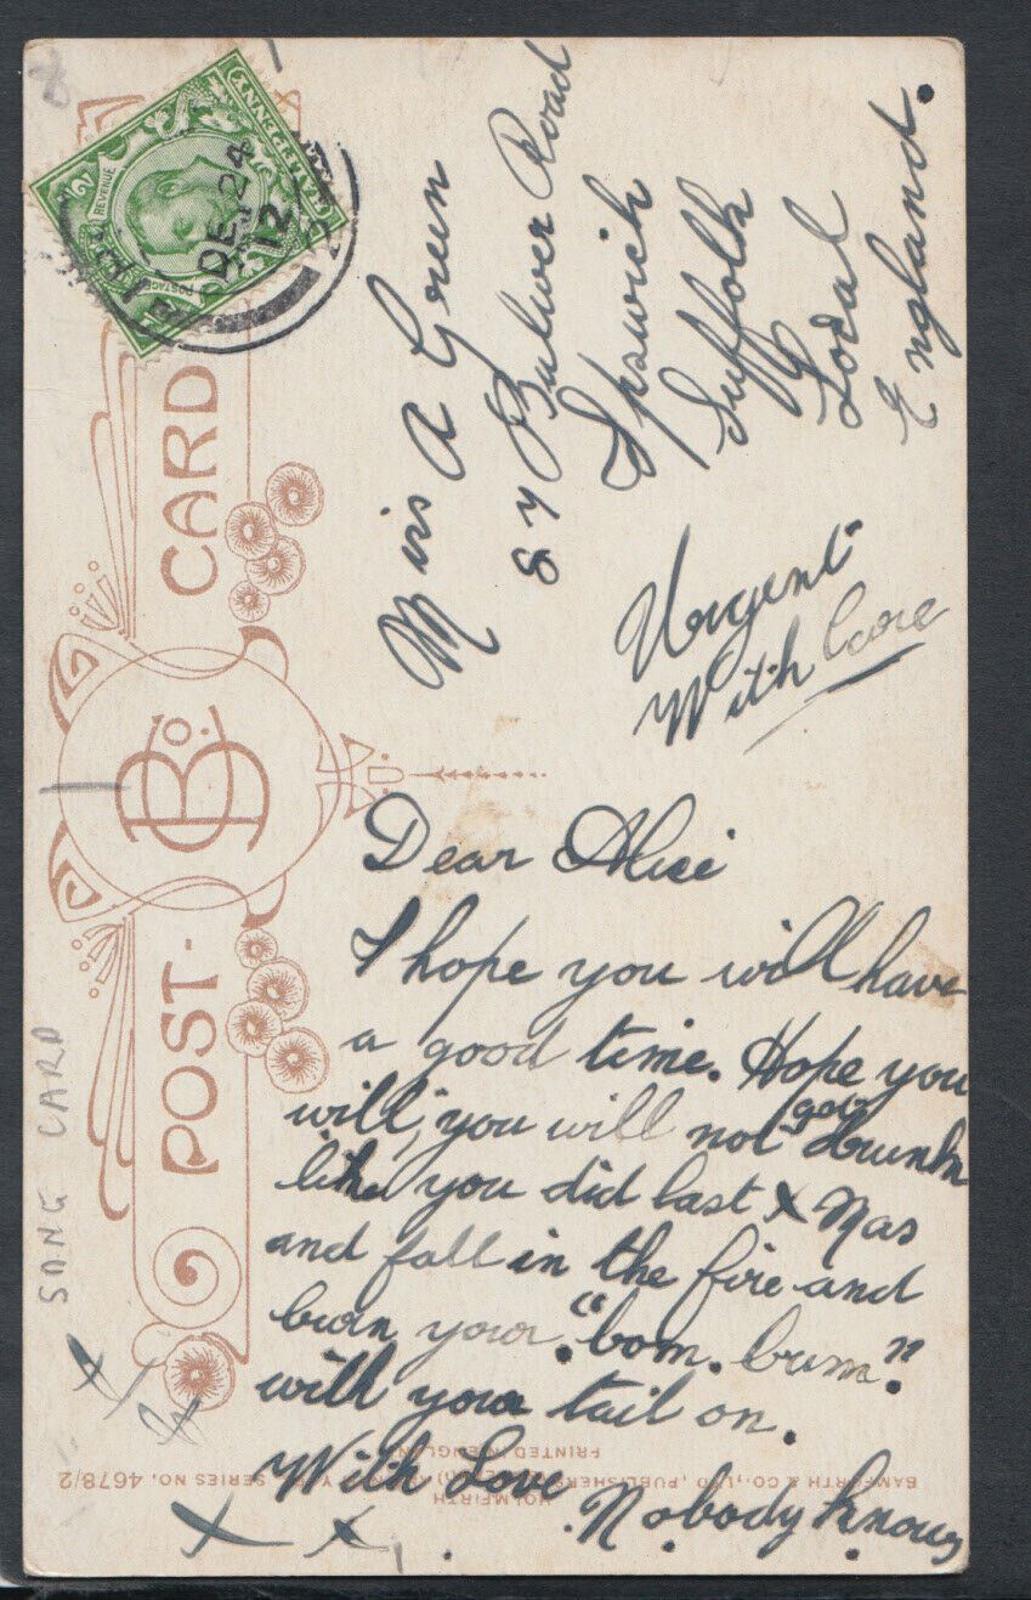 POST-CARD
B & Co.
HALFPENNY
POSTAGE
REVENUE
DE 24
12
SONG CARD
Miss A Green
87 Bulwer Road
Ipswich
Suffolk
Local
England.
Urgent
With Care
Dear Alice
I hope you will have
a good time. Hope you
will, you will not get drunk
like you did last X Mas
and fall in the fire and
burn your. "bom. bum."
with your tail on.
With Love
Nobody knows
X X
X X
BAMFORTH & CO., LTD, PUBLISHERS SERIES NO. 4678/2
HOLMFIRTH
PRINTED IN ENGLAND